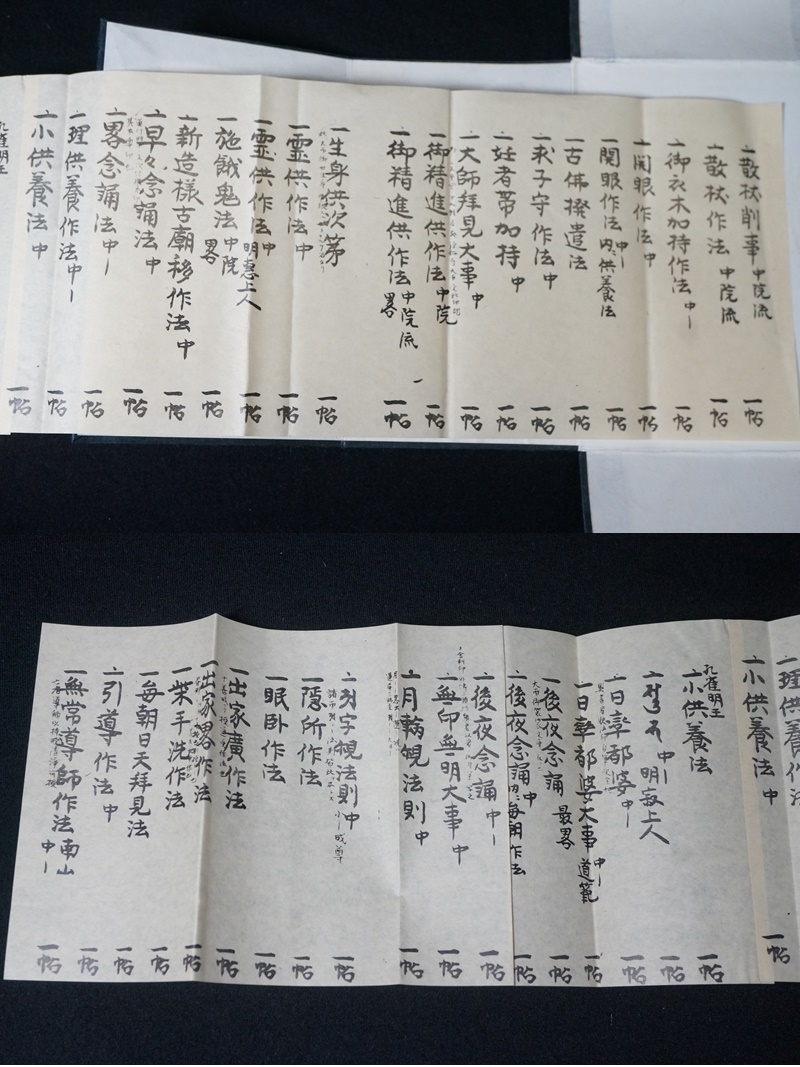 一散杖削事 中院流 一帖
一散杖作法 中院流 一帖
一御衣木加持作法 中一 一帖
一開眼作法 中 一帖
一開眼作法 中一 内供養法 一帖
一古佛撥遣法 一帖
一求子守作法 中 一帖
一妊者帯加持 中 一帖
一大師拜見大事 中 一帖
一御精進供作法 中院 一帖
一御精進供作法 中院流 畧 一帖
一生身供次第 一帖
一霊供作法 中 一帖
一霊供作法 中 明恵上人 一帖
一施餓鬼法 中院 畧 一帖
一新造様古廟移作法 中 一帖
一早々念誦法 中 一帖
一畧念誦法 中一 一帖
一理供養作法 中一 一帖
一小供養法 中 一帖
孔雀明王
一理供養作法 中一
一小供養法 中 一帖
孔雀明王
一小供養法 一帖
中一 明寂上人 一帖
一日率都婆 中一 一帖
一日率都婆大事 中一 道範 一帖
一後夜念誦 最畧 一帖
一後夜念誦 中 内每朝作法 一帖
一後夜念誦 中一 一帖
一無印無明大事 中 一帖
一月輪覌法則 中 一帖
字覌法則 中 一帖
一隠所作法 一帖
一眠卧作法 一帖
一出家廣作法 一帖
一出家畧作法 一帖
一柴手洗作法 一帖
一每朝日天拜見法 一帖
一引導作法 中 一帖
一無常導師作法 南山 中一 一帖